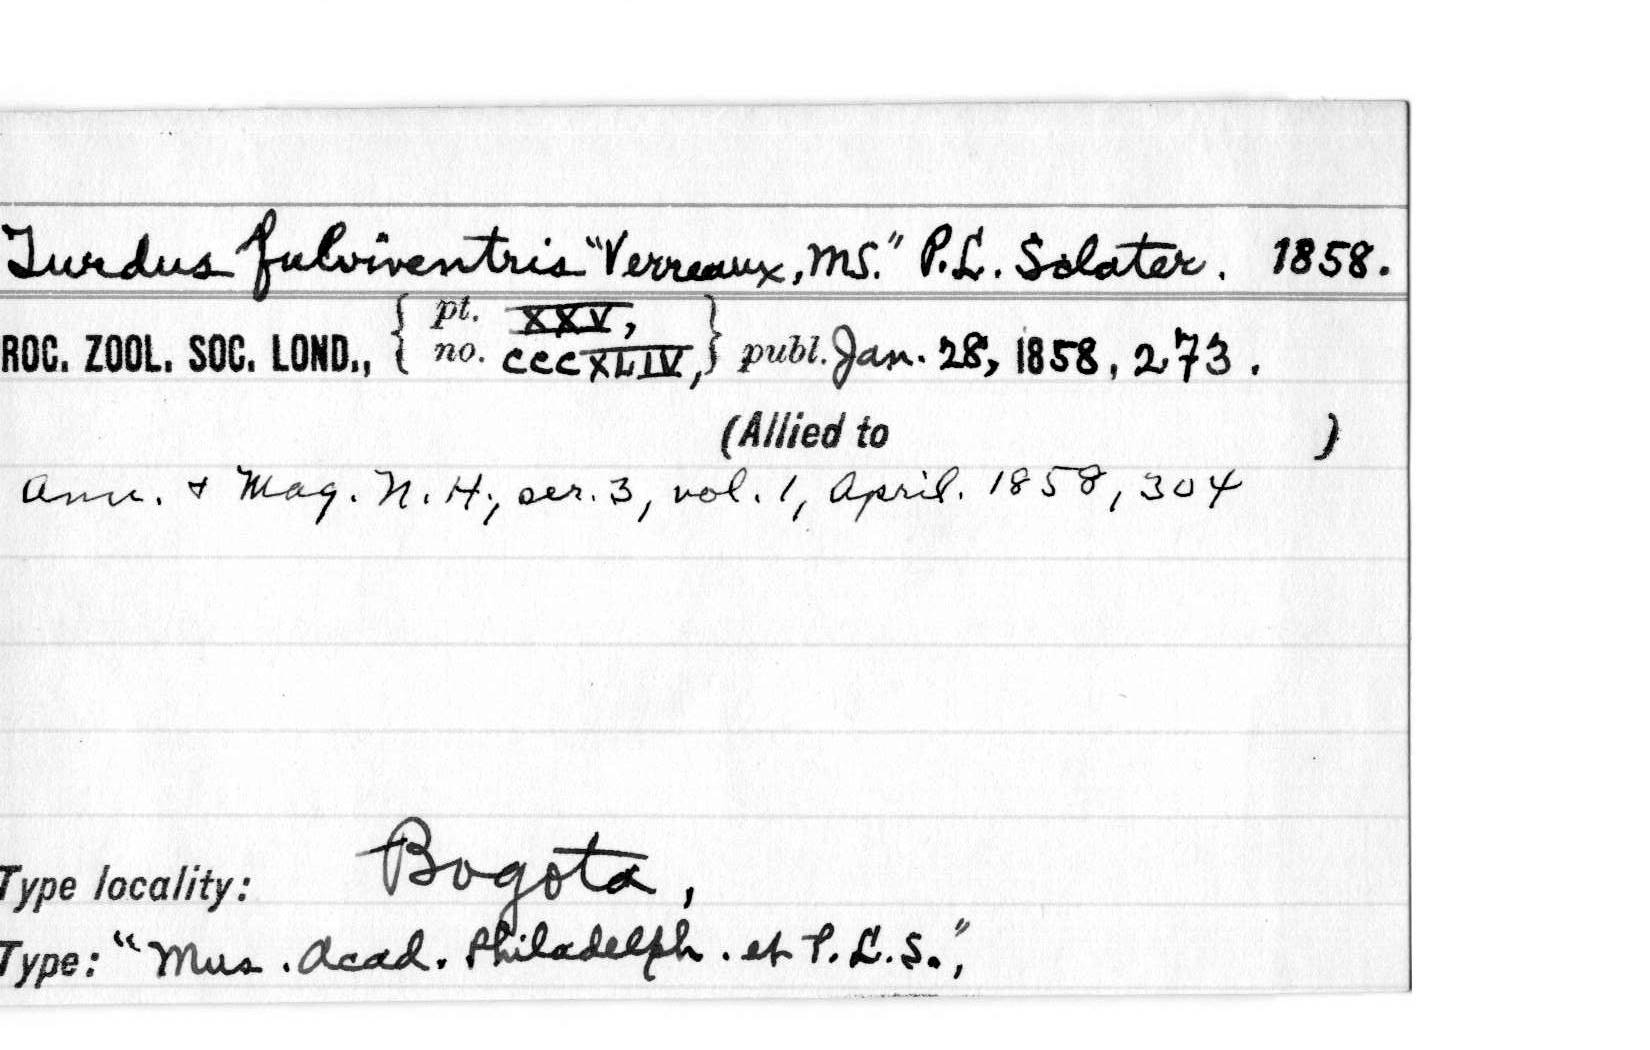 Turdus fulviventris "Verreaux, MS." P.L. Sclater. 1858.
ROC. ZOOL. SOC. LOND., { pt. XXV, no. CCCXLIV, } publ. Jan. 28, 1858, 273.
(Allied to )
Ann. & Mag. N. H., ser. 3, vol. 1, April. 1858, 304
Type locality: Bogota,
Type: "Mus. Acad. Philadelph. et P. L. S.",